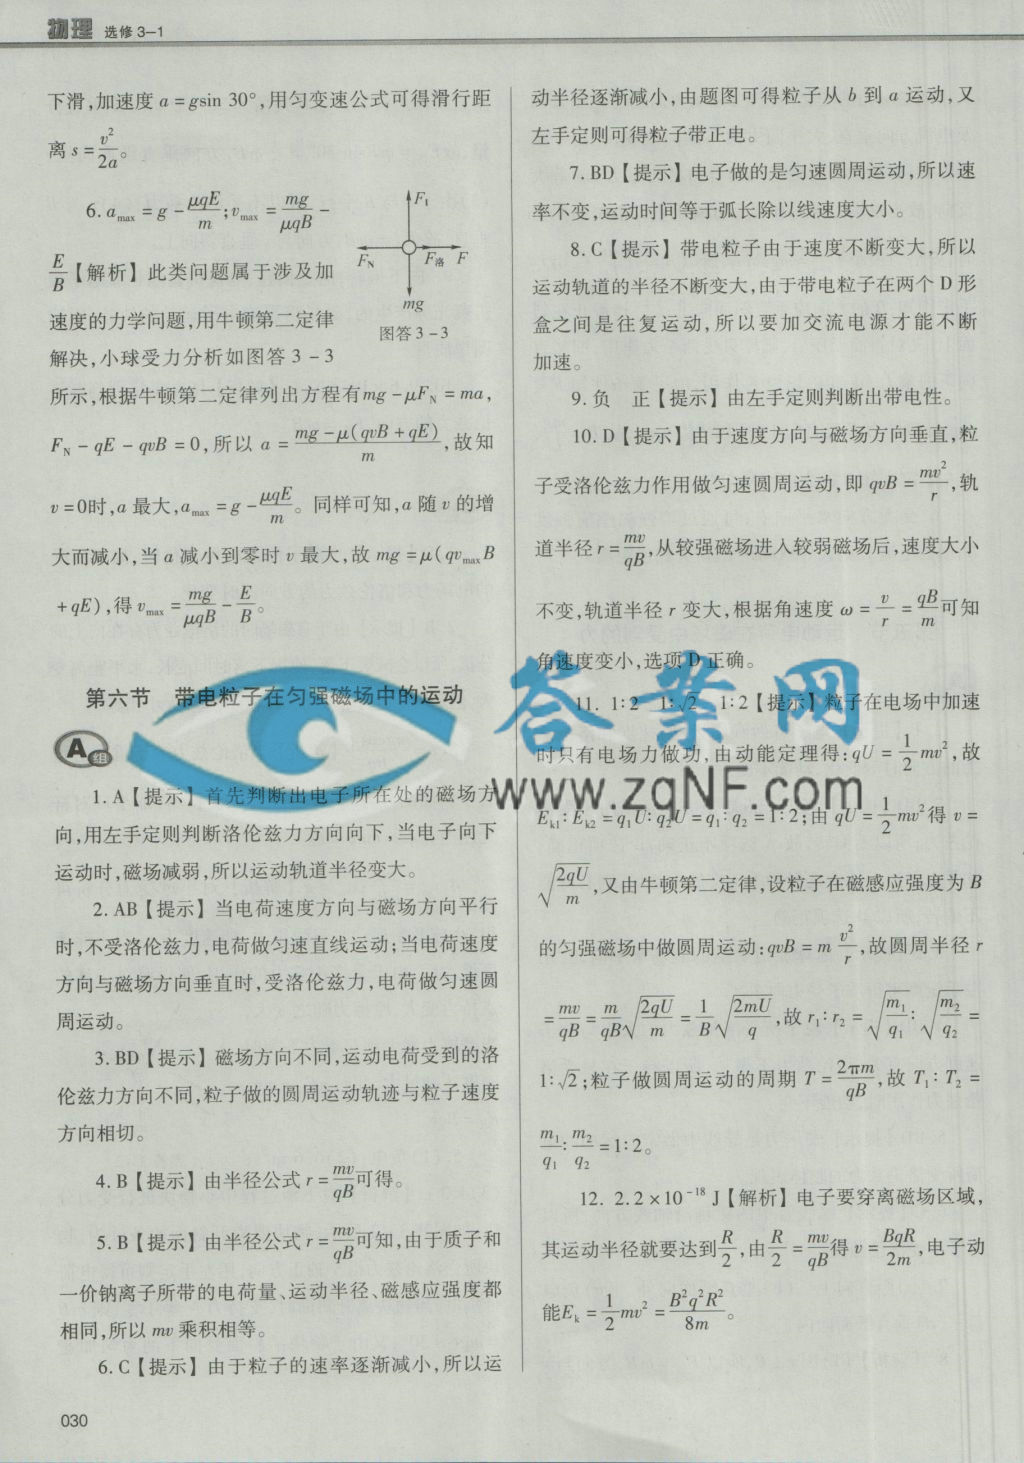 物理 选修 3-1
下滑,加速度 a = gsin 30°,用匀变速公式可得滑行距
离 s = v²/2a。
6. a_max = g - μqE/m; v_max = mg/μqB -
E/B【解析】此类问题属于涉及加
速度的力学问题,用牛顿第二定律
解决,小球受力分析如图答 3-3
F₁
F_N
F洛
F
mg
图答 3-3
所示,根据牛顿第二定律列出方程有 mg - μF_N = ma,
F_N - qE - qvB = 0,所以 a = mg - μ(qvB + qE)/m,故知
v = 0时,a 最大,a_max = g - μqE/m。同样可知,a 随 v 的增
大而减小,当 a 减小到零时 v 最大,故 mg = μ(qv_max B
+ qE),得 v_max = mg/μqB - E/B。
第六节 带电粒子在匀强磁场中的运动
A组
1. A【提示】首先判断出电子所在处的磁场方
向,用左手定则判断洛伦兹力方向向下,当电子向下
运动时,磁场减弱,所以运动轨道半径变大。
2. AB【提示】当电荷速度方向与磁场方向平行
时,不受洛伦兹力,电荷做匀速直线运动;当电荷速度
方向与磁场方向垂直时,受洛伦兹力,电荷做匀速圆
周运动。
3. BD【提示】磁场方向不同,运动电荷受到的洛
伦兹力方向不同,粒子做的圆周运动轨迹与粒子速度
方向相切。
4. B【提示】由半径公式 r = mv/qB可得。
5. B【提示】由半径公式 r = mv/qB可知,由于质子和
一价钠离子所带的电荷量、运动半径、磁感应强度都
相同,所以 mv 乘积相等。
6. C【提示】由于粒子的速率逐渐减小,所以运
030
动半径逐渐减小,由题图可得粒子从 b 到 a 运动,又
左手定则可得粒子带正电。
7. BD【提示】电子做的是匀速圆周运动,所以速
率不变,运动时间等于弧长除以线速度大小。
8. C【提示】带电粒子由于速度不断变大,所以
运动轨道的半径不断变大,由于带电粒子在两个 D 形
盒之间是往复运动,所以要加交流电源才能不断
加速。
9. 负 正【提示】由左手定则判断出带电性。
10. D【提示】由于速度方向与磁场方向垂直,粒
子受洛伦兹力作用做匀速圆周运动,即 qvB = mv²/r,轨
道半径 r = mv/qB,从较强磁场进入较弱磁场后,速度大小
不变,轨道半径 r 变大,根据角速度 ω = v/r = qB/m可知
角速度变小,选项 D 正确。
11. 1∶2 1∶√2 1∶2【提示】粒子在电场中加速
时只有电场力做功,由动能定理得:qU = 1/2 mv²,故
E_k1∶E_k2 = q₁U∶q₂U = q₁∶q₂ = 1∶2;由 qU = 1/2 mv² 得 v =
√(2qU/m),又由牛顿第二定律,设粒子在磁感应强度为 B
的匀强磁场中做圆周运动:qvB = m v²/r,故圆周半径 r
= mv/qB = m/qB √(2qU/m) = 1/B √(2mU/q),故 r₁∶r₂ = √(m₁/q₁)∶√(m₂/q₂) =
1∶√2;粒子做圆周运动的周期 T = 2πm/qB,故 T₁∶T₂ =
m₁/q₁∶m₂/q₂ = 1∶2。
12. 2.2 × 10⁻¹⁸ J【解析】电子要穿离磁场区域,
其运动半径就要达到R/2,由R/2 = mv/qB得 v = BqR/2m,电子动
能E_k = 1/2 mv² = B²q²R²/8m。
答案网
www.zqNF.com